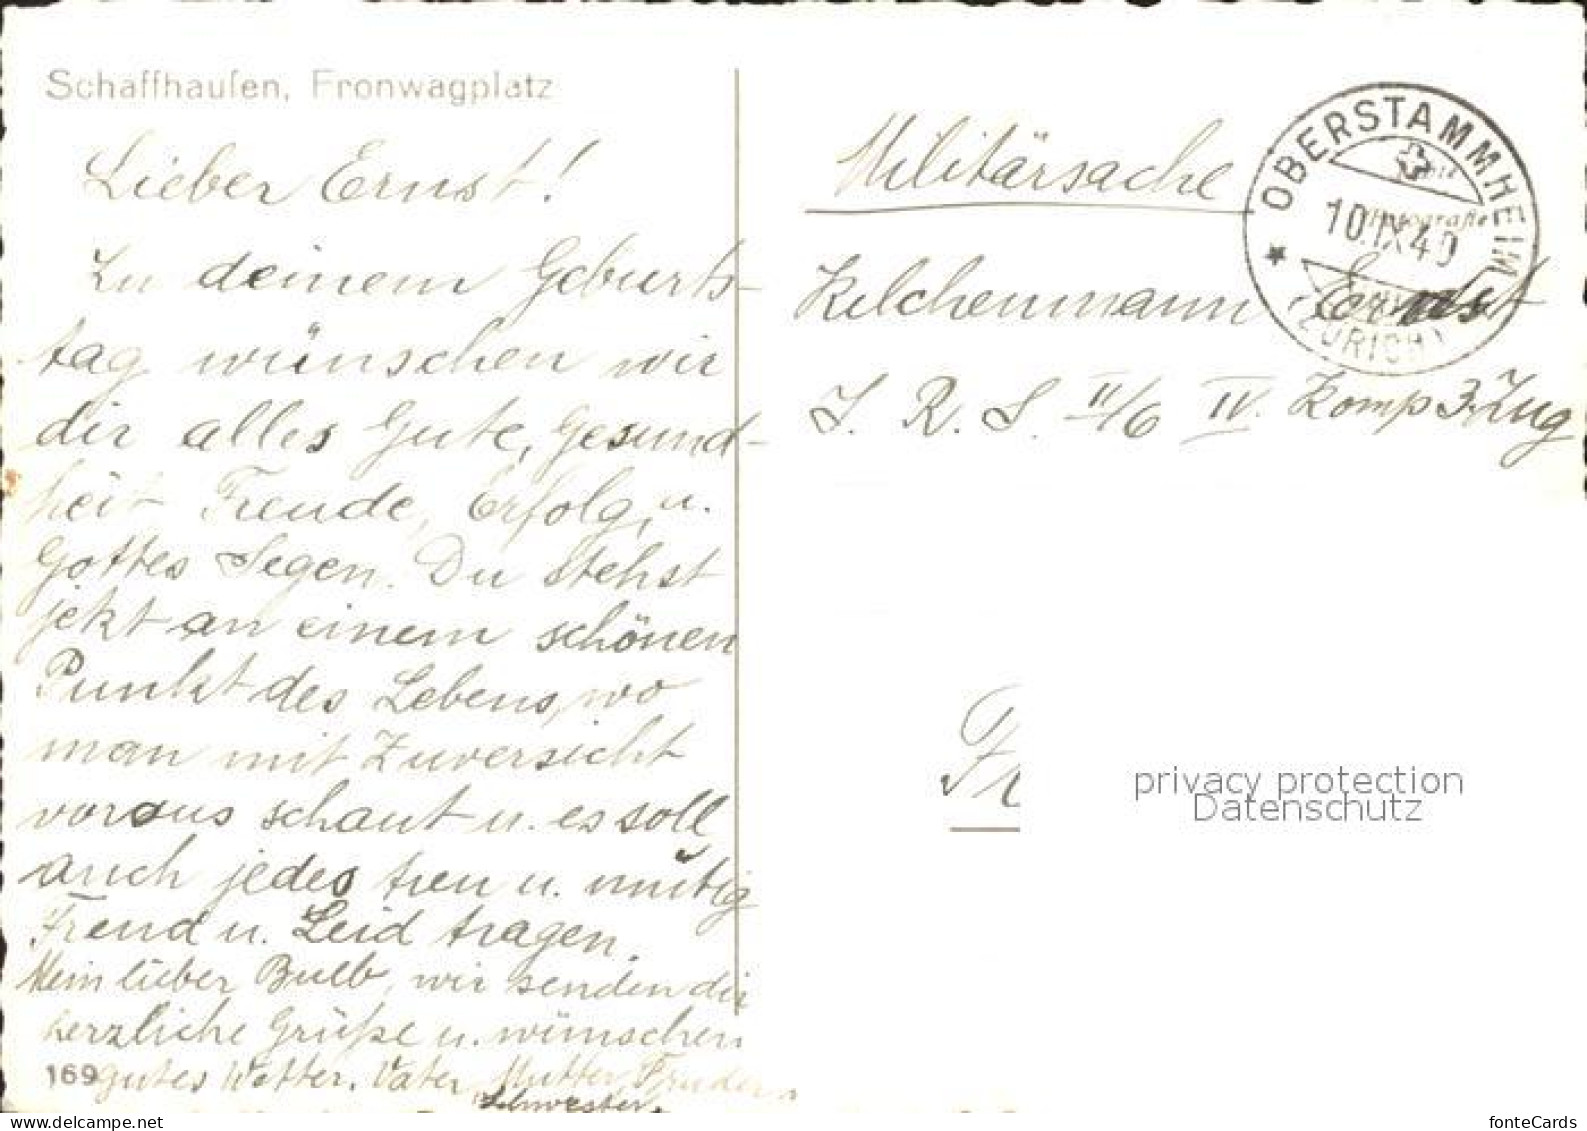 Schaffhausen, Fronwagplatz
Lieber Ernst!
Zu deinem Geburts-
tag wünschen wir
dir alles Gute, Gesund-
heit Freude, Erfolg, u.
Gottes Segen. Du stehst
jetzt an einem schönen
Punkt des Lebens, wo
man mit Zuversicht
voraus schaut u. es soll
auch jedes treu u. mutig
Freud u. Leid tragen.
Mein lieber Bueb, wir senden dir
herzliche Grüße u. wünschen
gutes Wetter. Vater, Mutter,
Schwester.
169
Militärsache
Kelchenmann Ernst
I. R. S. II/6 IV. Komp 3. Zug
Fr
OBERSTAMMHEIM
10.IX.40
(ZÜRICH)
privacy protection
Datenschutz
delcampe.net
fonteCards